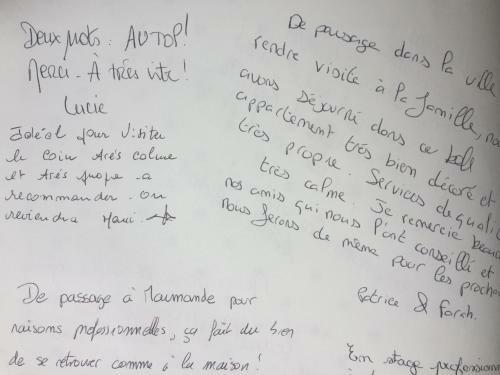 Deux mots : AU TOP!
Merci - À très vite!
Lucie
Idéal pour visiter
le coin très calme
et très propre a
recommander. on
reviendra Merci.
De passage dans la ville
rendre visite à la famille,
avons séjourné dans ce bel
appartement très bien décoré et
très propre. Services de
très calme. Je remercie
nos amis qui nous l'ont conseillé et
nous ferons de même pour les
Patrice & Farah.
De passage à Marmande pour
raisons professionnelles, ça fait du bien
de se retrouver comme à la maison!
En stage